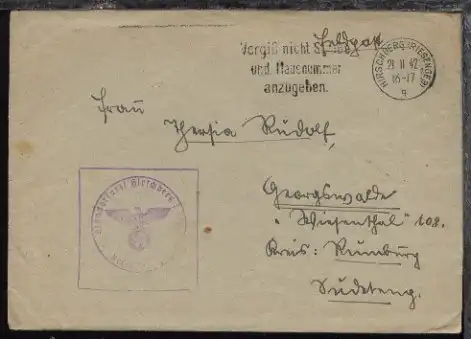 Feldpost
Vergiß nicht Straße
und Hausnummer
anzugeben.
HIRSCHBERG (RIESENGEB)
21.11.42
16-17
g
Frau
Thersia Rudolf,
Georgswalde
"Wiesenthal" 108.
Kreis: Rumburg
Sudeteng.
Hirschberg